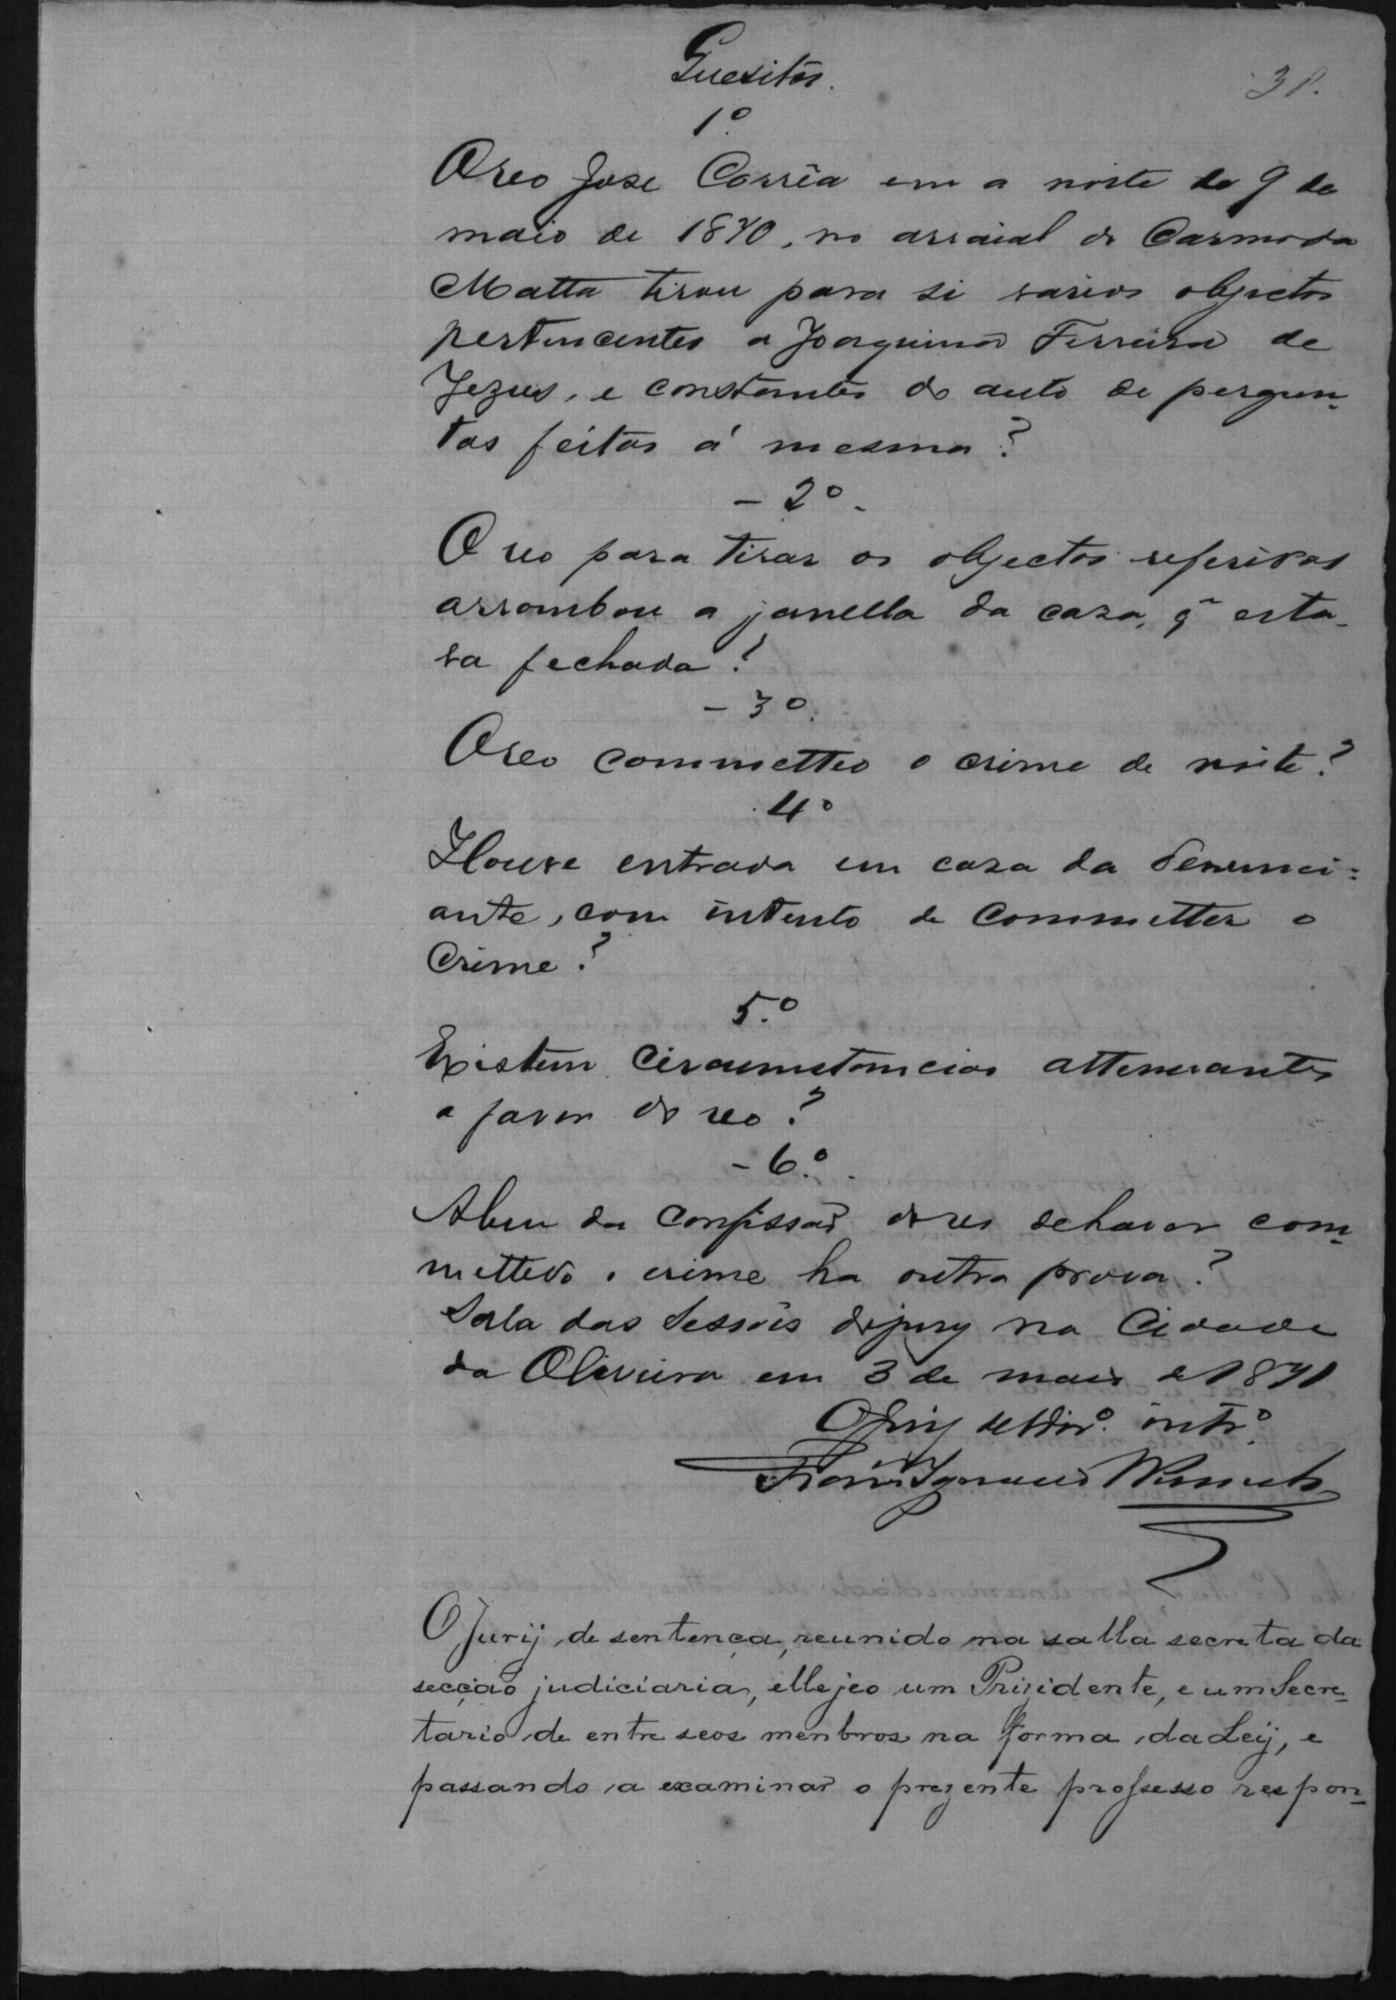 Quesitos.
38.
1º
O reo José Corrêa em a noite de 9 de
maio de 1870, no arraial do Carmo da
Matta tirou para si varios objectos
pertencentes a Joaquina Ferreira de
Jezus, e constantes do auto de pergun-
tas feitas á mesma?
- 2º.
O reo para tirar os objectos referidos
arrombou a janella da caza, q̃ esta-
va fechada?
- 3º.
O reo commetteo o crime de noite?
4º
Houve entrada em caza da denunci-
ante, com intento de commetter o
crime?
5.º
Existem circumstancias attenuantes
a favor do reo?
- 6º.
Alem da confissão do reo de haver com-
mettido o crime ha outra prova?
Sala das Sessões do jury na Cidade
da Oliveira em 3 de maio de 1871
O Juiz de Dirº. intº.
Ignacio
O Jurij, de sentença, reunido na salla secreta da
secção judiciaria, ellejeo um Prizidente, e um Secre-
tario, de entre seos menbros na forma, da Leij, e
passando, a examinar o prezente professo respon-